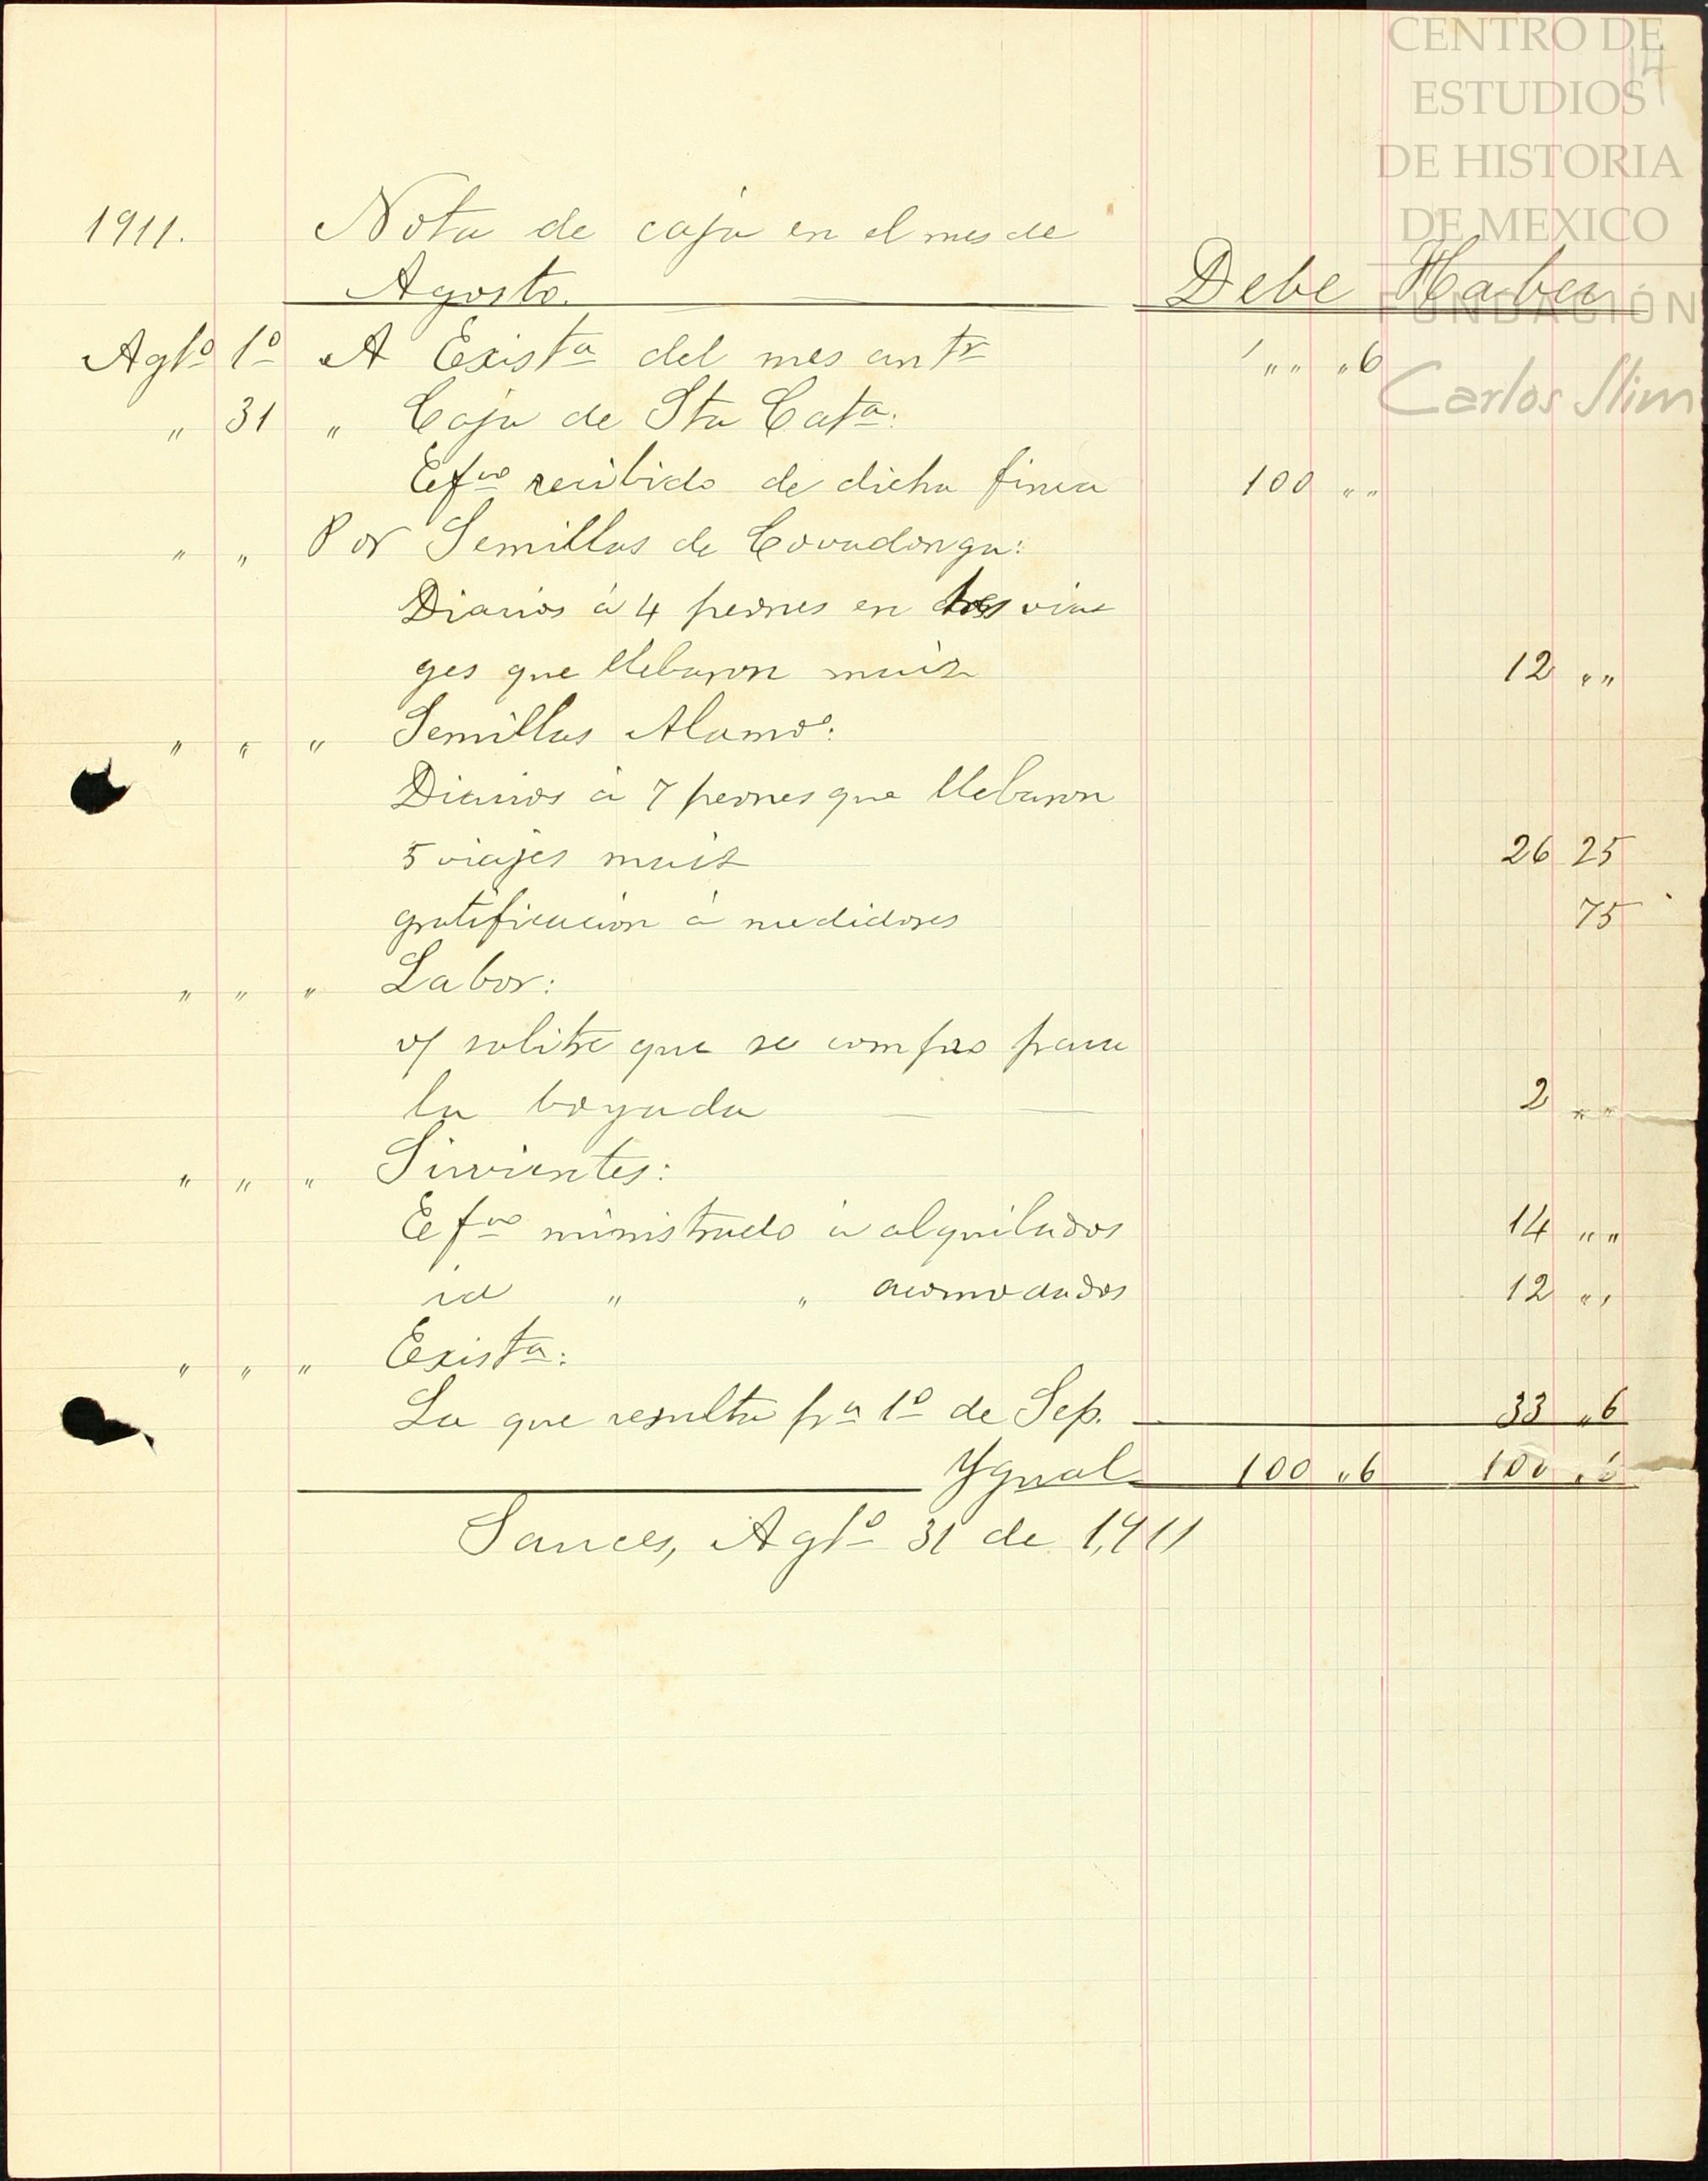 CENTRO DE
ESTUDIOS
DE HISTORIA
DE MEXICO
FUNDACIÓN
Carlos Slim
14
1911. Nota de caja en el mes de
Agosto. Debe Haber
Agto 1o A Exista del mes antr " " " 6
" 31 " Caja de Sta Cata:
Efvo recibido de dicha finca 100 " "
" " Por Semillas de Covadonga:
Diarios á 4 peones en tres via
ges que llebaron maiz 12 " "
" " " Semillas Alamo:
Diarios á 7 peones que llebaron
5 viajes maiz 26 25
gratificacion á medidores 75
" " " Labor:
v/ salitre que se compro para
la boyada 2 " "
" " " Sirvientes:
Efvo ministrado á alquilados 14 " "
id " " acomodados 12 " "
" " " Exista:
La que resulta pa 1o de Sep. 33 " 6
Ygual 100 " 6 100 " 6
Sauces, Agto 31 de 1,911